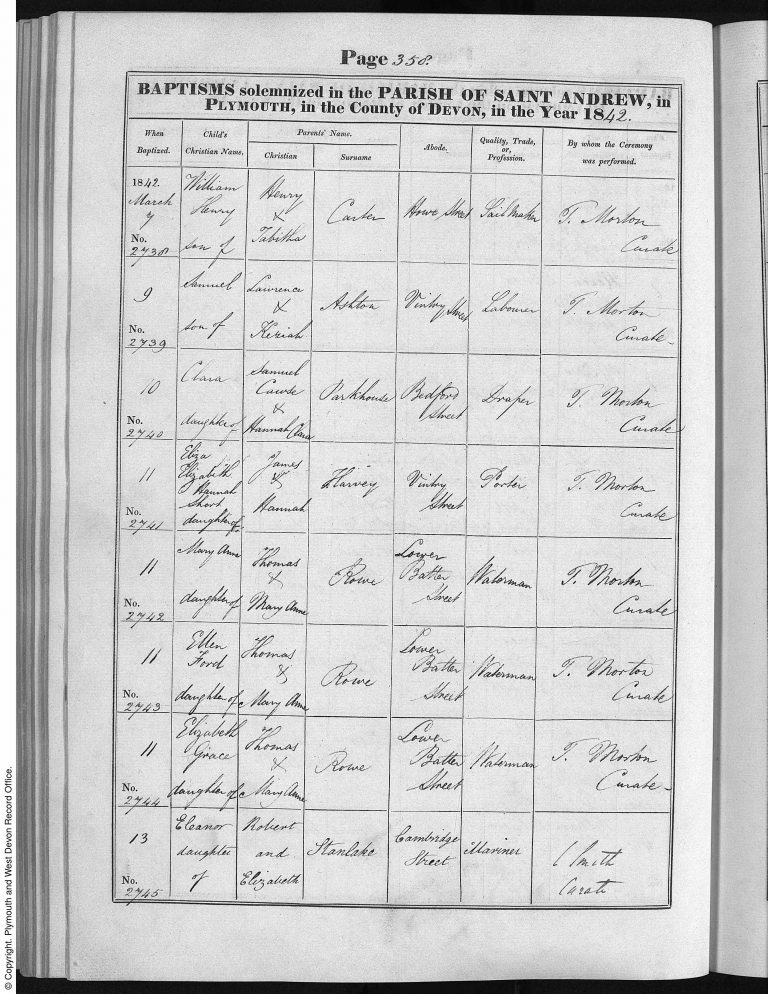 Page 358.
BAPTISMS solemnized in the PARISH OF SAINT ANDREW, in
PLYMOUTH, in the County of DEVON, in the Year 1842.
When Baptized.
Child's Christian Name.
Parents' Name.
Christian
Surname
Abode.
Quality, Trade, or, Profession.
By whom the Ceremony was performed.
1842.
March
7
No.
2738
William
Henry
son of
Henry
&
Tabitha
Carter
Howe Street
Sail Maker
T. Morton
Curate
9
No.
2739
Samuel
son of
Lawrence
&
Keziah
Ashton
Vintry Street
Labourer
T. Morton
Curate
10
No.
2740
Clara
daughter of
Samuel
Cawse
&
Hannah Clara
Parkhouse
Bedford
Street
Draper
T. Morton
Curate
11
No.
2741
Eliza
Elizabeth
Hannah
Short
daughter of
James
&
Hannah
Harvey
Vintry
Street
Porter
T. Morton
Curate
11
No.
2742
Mary Anne
daughter of
Thomas
&
Mary Anne
Rowe
Lower
Batter
Street
Waterman
T. Morton
Curate
11
No.
2743
Ellen
Ford
daughter of
Thomas
&
Mary Anne
Rowe
Lower
Batter
Street
Waterman
T. Morton
Curate
11
No.
2744
Elizabeth
Grace
daughter of
Thomas
&
Mary Anne
Rowe
Lower
Batter
Street
Waterman
T. Morton
Curate
13
No.
2745
Eleanor
daughter
of
Robert
and
Elizabeth
Stanlake
Cambridge
Street
Mariner
Smith
Curate
© Copyright. Plymouth and West Devon Record Office.